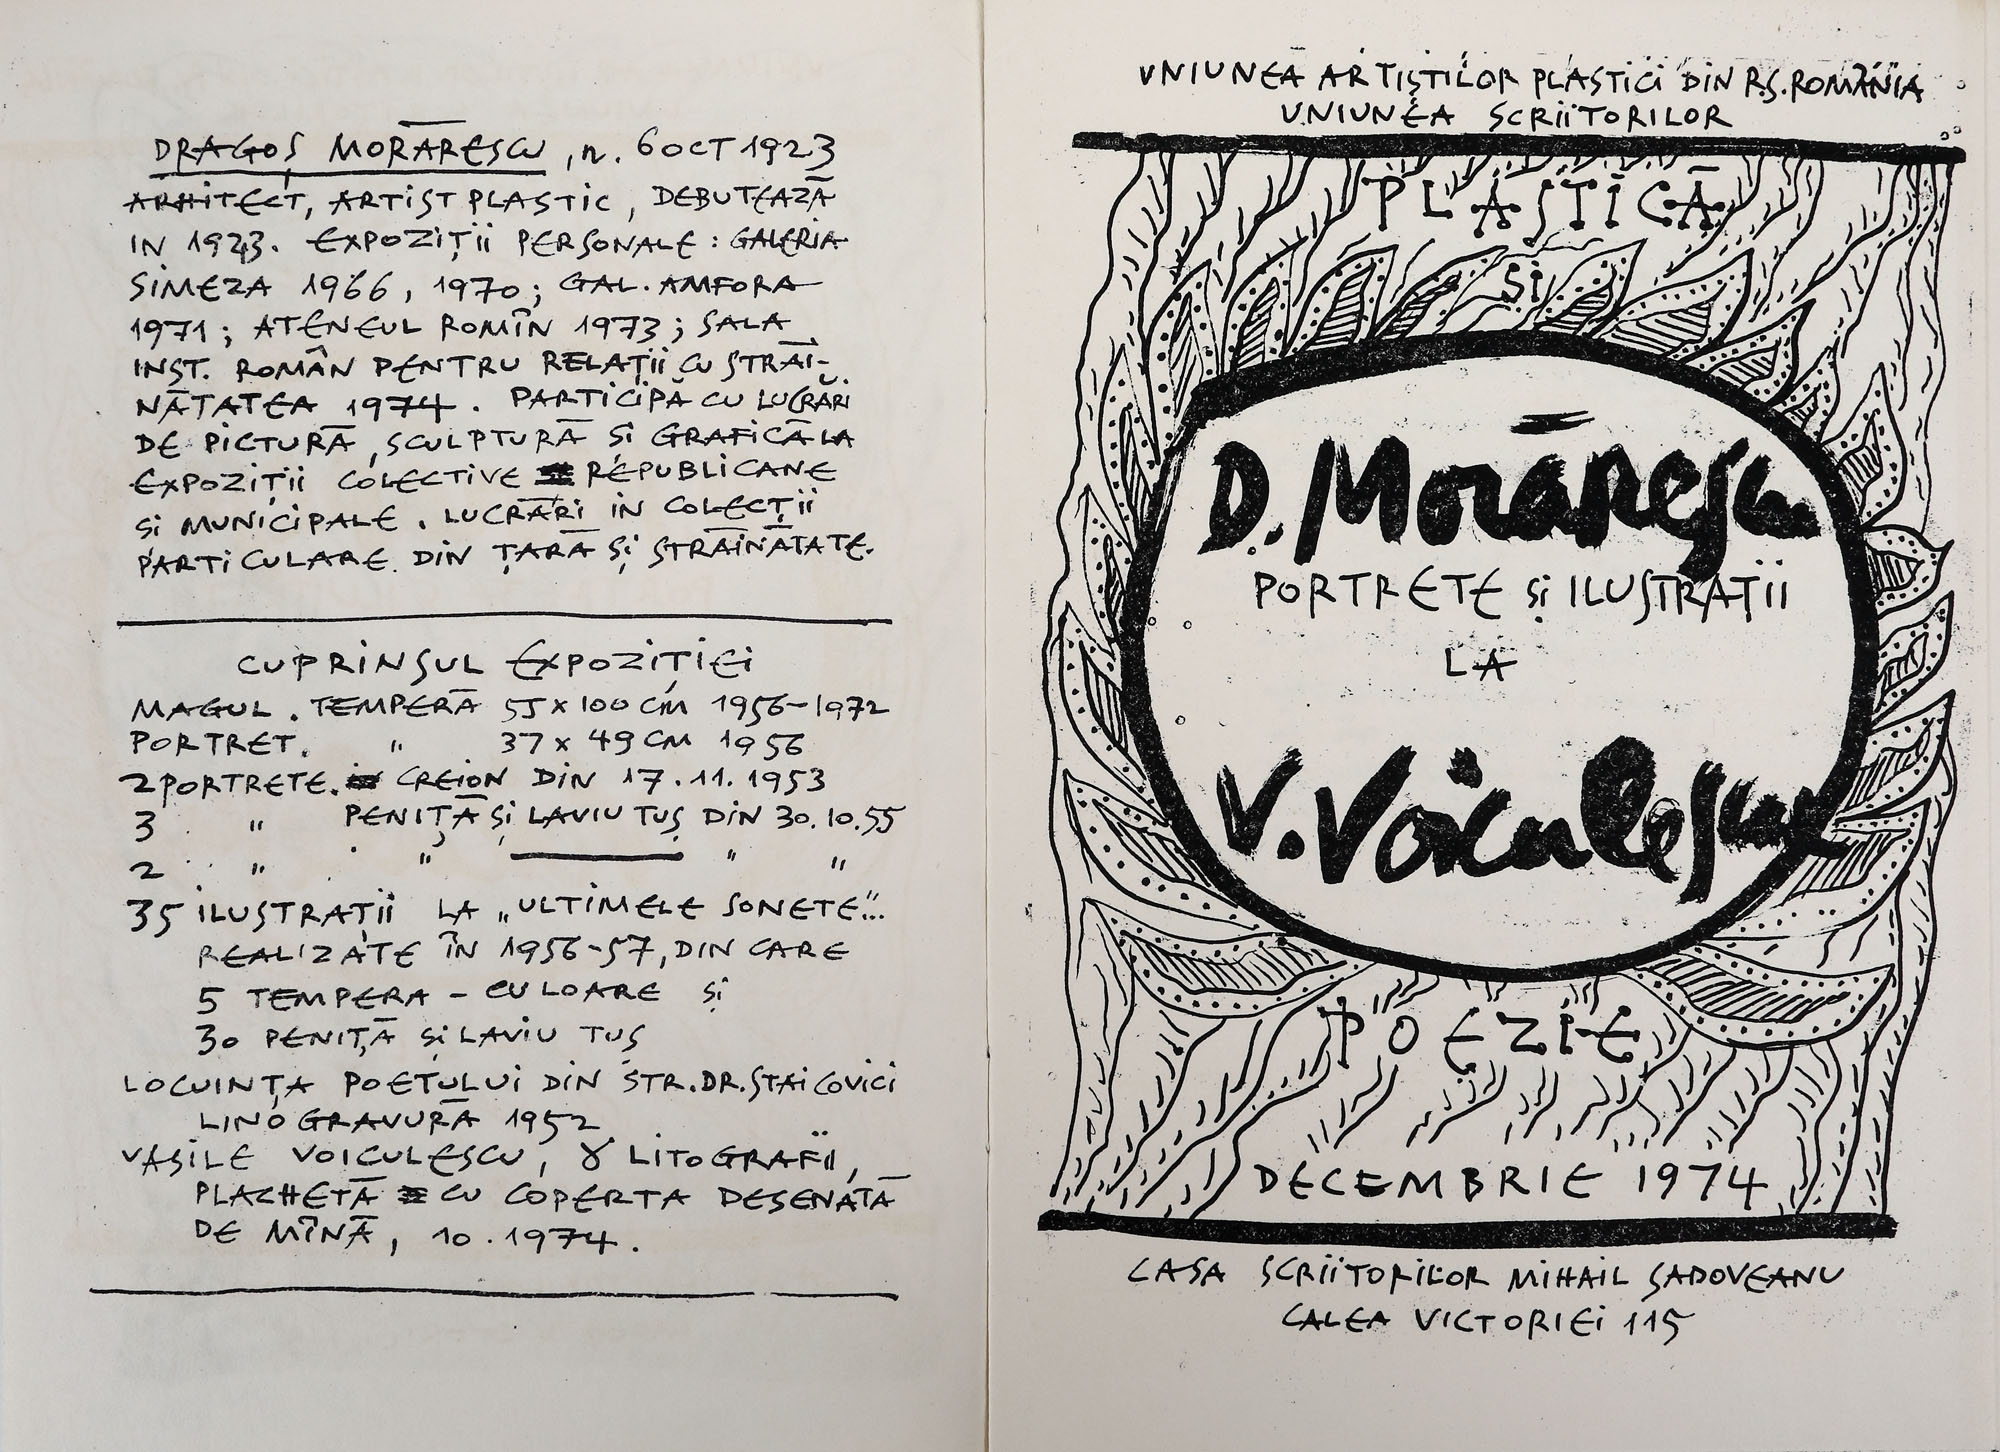 DRAGOȘ MORĂRESCU, n. 6 OCT 1923
ARHITECT, ARTIST PLASTIC, DEBUTEAZĂ
IN 1923. EXPOZIȚII PERSONALE: GALERIA
SIMEZA 1966, 1970; GAL. AMFORA
1971; ATENEUL ROMÎN 1973; SALA
INST. ROMÂN PENTRU RELAȚII CU STRĂI-
NĂTATEA 1974. PARTICIPĂ CU LUCRĂRI
DE PICTURĂ, SCULPTURĂ SI GRAFICĂ LA
EXPOZIȚII COLECTIVE REPUBLICANE
SI MUNICIPALE. LUCRĂRI IN COLECȚII
PARTICULARE DIN ȚARĂ ȘI STRĂINĂTATE.
CUPRINSUL EXPOZIȚIEI
MAGUL. TEMPERĂ 55 x 100 CM 1956-1972
PORTRET. " 37 x 49 CM 1956
2 PORTRETE. CREION DIN 17.11.1953
3 " PENIȚĂ ȘI LAVIU TUȘ DIN 30.10.55
2 " " " "
35 ILUSTRAȚII LA „ULTIMELE SONETE"...
REALIZATE ÎN 1956-57, DIN CARE
5 TEMPERA - CULOARE ȘI
30 PENIȚĂ ȘI LAVIU TUȘ
LOCUINȚA POETULUI DIN STR. DR. STAICOVICI
LINOGRAVURĂ 1952
VASILE VOICULESCU, 8 LITOGRAFII,
PLACHETĂ CU COPERTA DESENATĂ
DE MÎNĂ, 10.1974.
UNIUNEA ARTIȘTILOR PLASTICI DIN R.S. ROMÂNIA
UNIUNEA SCRIITORILOR
PLASTICĂ
ȘI
D. Morărescu
PORTRETE ȘI ILUSTRAȚII
LA
V. Voiculescu
POEZIE
DECEMBRIE 1974
CASA SCRIITORILOR MIHAIL SADOVEANU
CALEA VICTORIEI 115